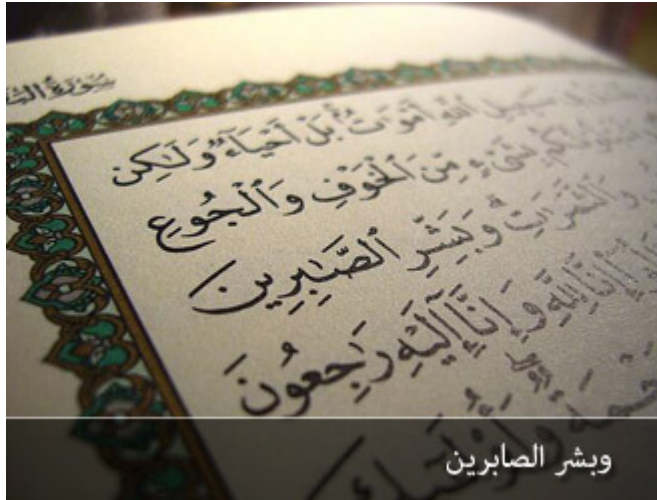 سُورَةُ
سَبِيلِ اللَّهِ أَمْوَاتٌ بَلْ أَحْيَاءٌ وَلَٰكِن
بِشَيْءٍ مِّنَ الْخَوْفِ وَالْجُوعِ
وَالثَّمَرَاتِ وَبَشِّرِ الصَّابِرِينَ
إِنَّا لِلَّهِ وَإِنَّا إِلَيْهِ رَاجِعُونَ
وبشر الصابرين